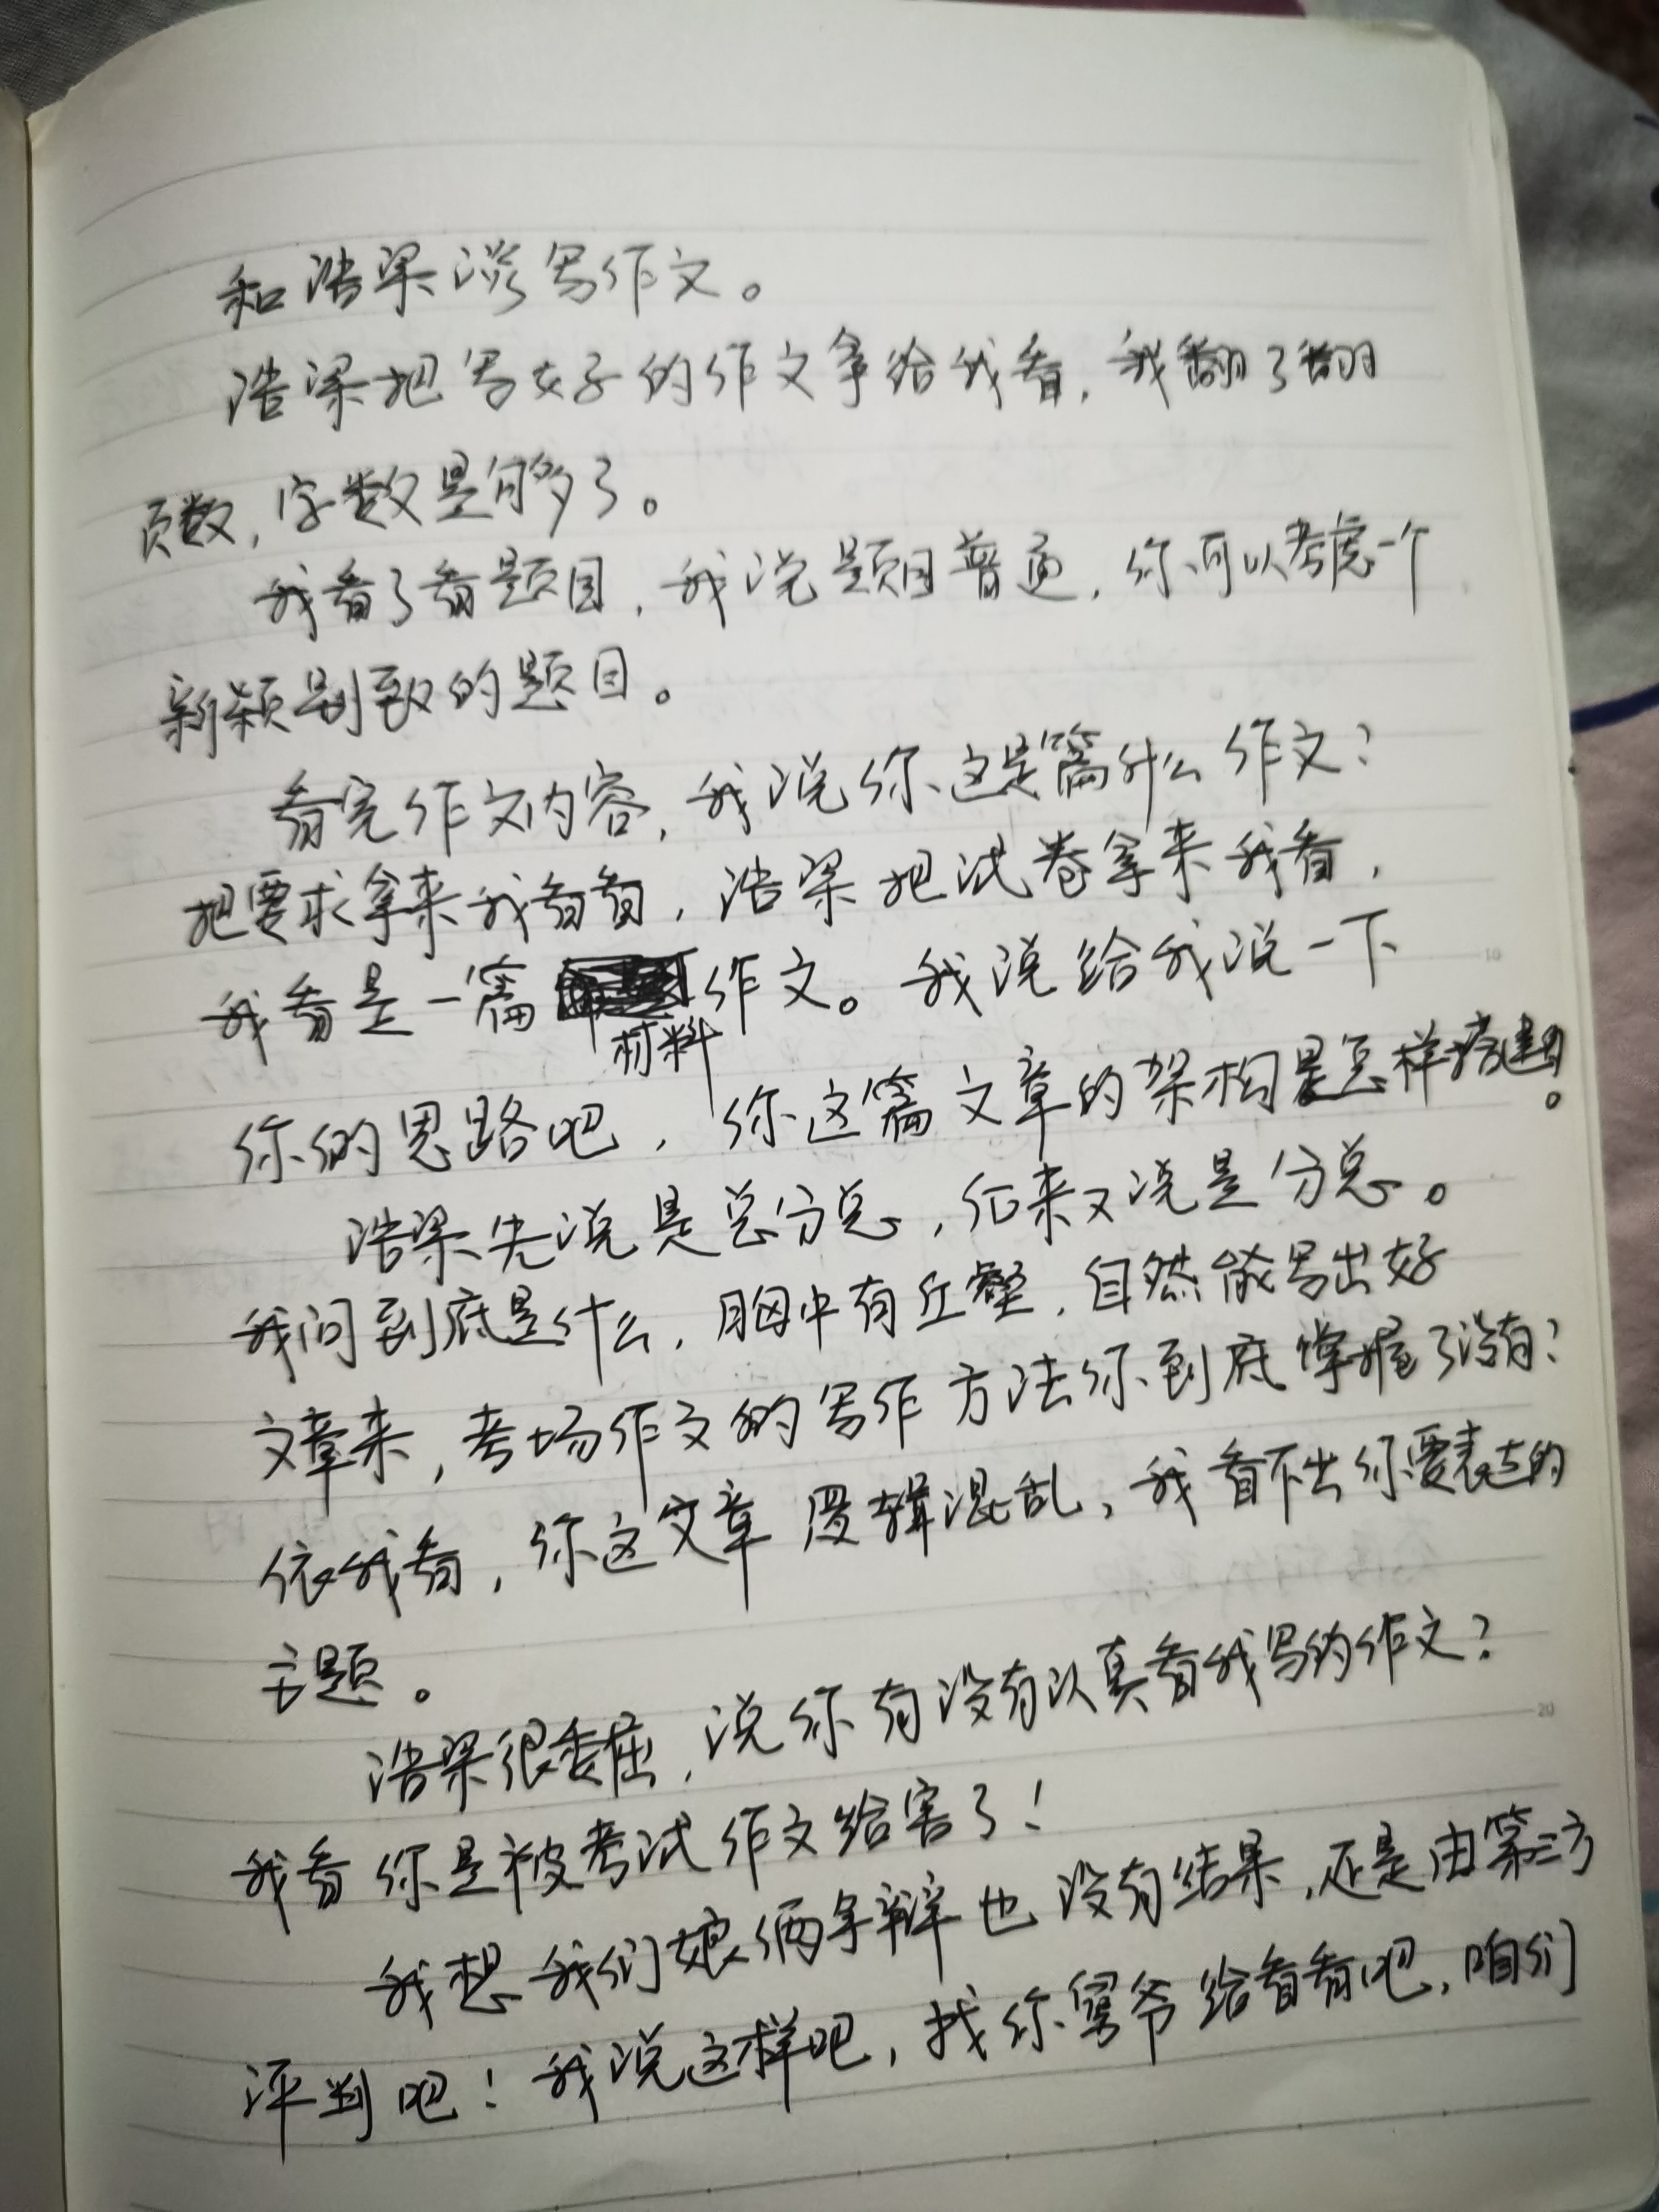 和浩梁谈写作文。
浩梁把写好的作文拿给我看，我翻了翻
页数，字数是够了。
我看了看题目，我说题目普通，你可以考虑一个
新颖别致的题目。
看完作文内容，我说你这是篇什么作文？
把要求拿来我看看，浩梁把试卷拿来我看，
我看是一篇材料作文。我说给我说一下
你的思路吧，你这篇文章的架构是怎样搭建的。
浩梁先说是总分总，后来又说是分总。
我问到底是什么，胸中有丘壑，自然能写出好
文章来，考场作文的写作方法你到底掌握了没有？
依我看，你这文章逻辑混乱，我看不出你要表达的
主题。
浩梁很委屈，说你有没有认真看我写的作文？
我看你是被考试作文给害了！
我想我们娘俩争辩也没有结果，还是由第三方
评判吧！我说这样吧，找你舅爷给看看吧，咱们